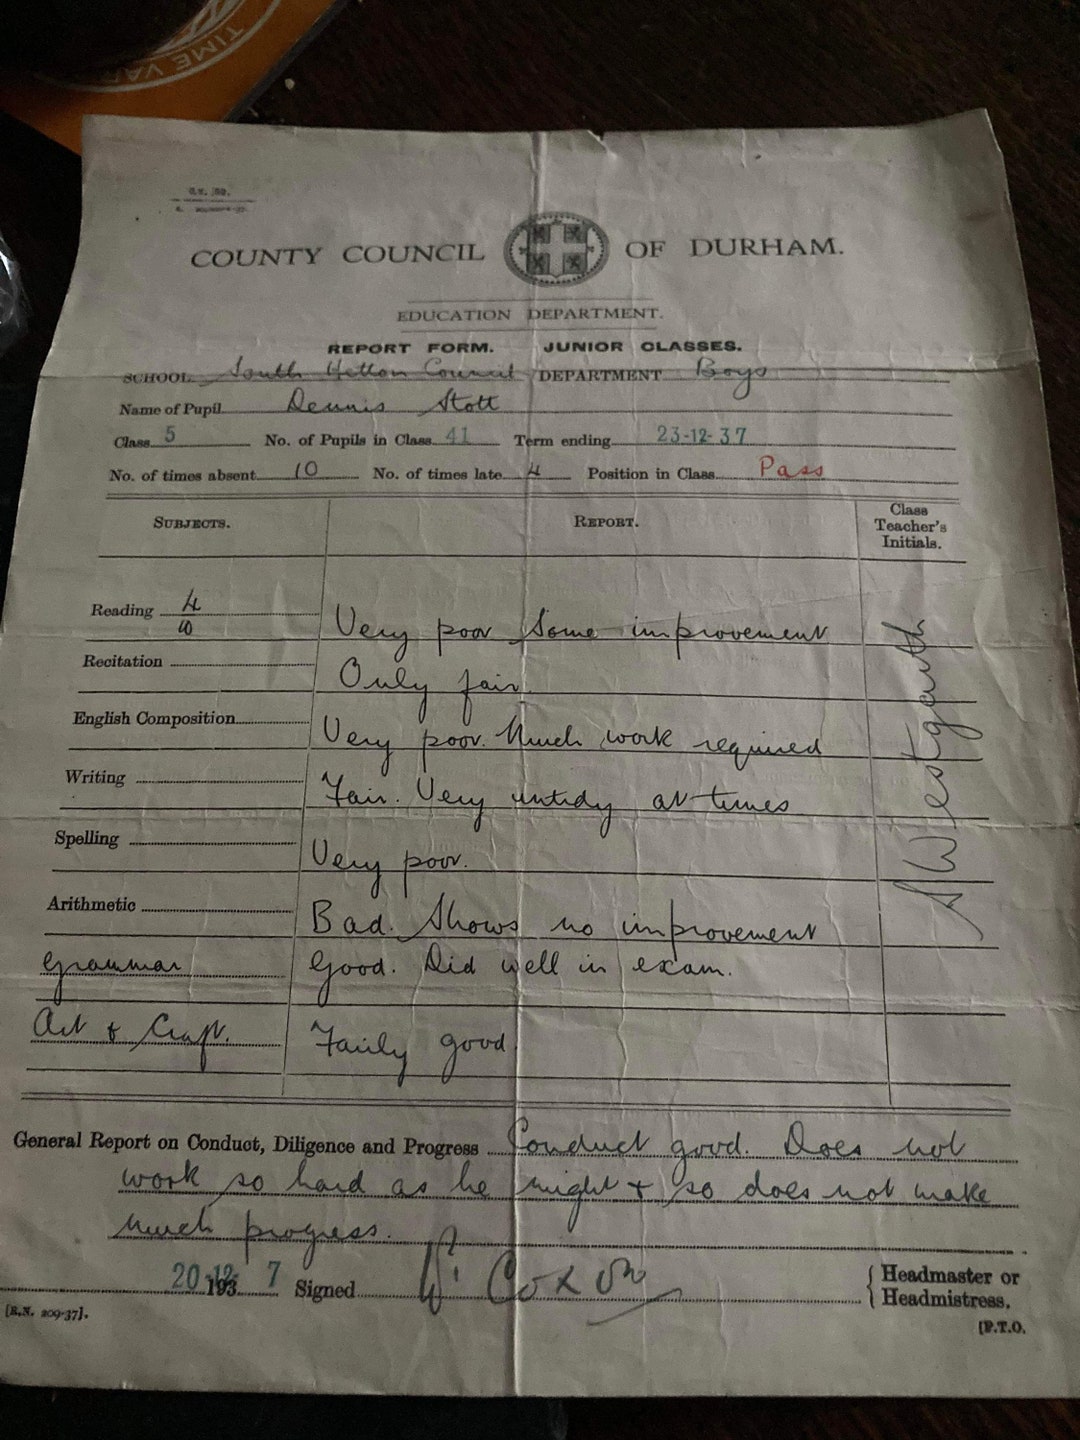 TIME VA
COUNTY COUNCIL OF DURHAM.
EDUCATION DEPARTMENT.
REPORT FORM. JUNIOR CLASSES.
SCHOOL South Hetton Council DEPARTMENT Boys
Name of Pupil Dennis Stott
Class 5 No. of Pupils in Class 41 Term ending 23-12-37
No. of times absent 10 No. of times late 4 Position in Class Pass
SUBJECTS. REPORT. Class Teacher's Initials.
Reading 4/10 Very poor Some improvement
Recitation Only fair.
English Composition Very poor. Much work required
Writing Fair. Very untidy at times
Spelling Very poor.
Arithmetic Bad. Shows no improvement
Grammar Good. Did well in exam.
Art & Craft. Fairly good.
Westgarth
General Report on Conduct, Diligence and Progress Conduct good. Does not
work so hard as he might & so does not make
much progress.
20-12- 193 7 Signed W. Coxon Headmaster or Headmistress.
[E.N. 209-37].
[P.T.O.